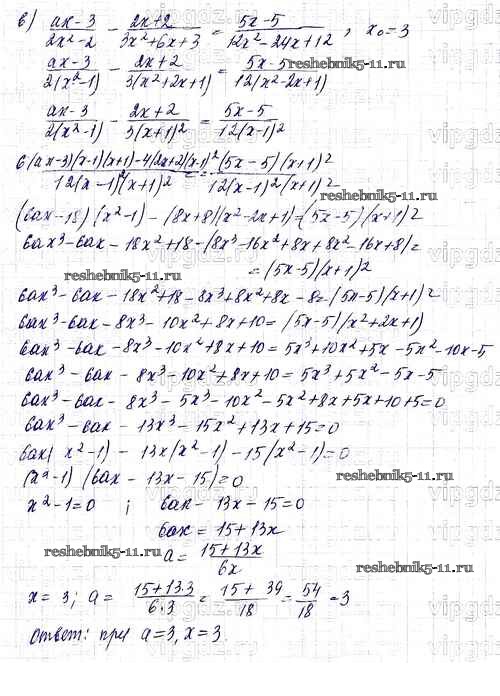 в) (ax-3)/(2x²-2) - (2x+2)/(3x²+6x+3) = (5x-5)/(12x²-24x+12) ; x₀=3
reshebnik5-11.ru
(ax-3)/(2(x²-1)) - (2x+2)/(3(x²+2x+1)) = (5x-5)/(12(x²-2x+1))
(ax-3)/(2(x²-1)) - (2x+2)/(3(x+1)²) = (5x-5)/(12(x-1)²)
(6(ax-3)(x-1)(x+1)-4(2x+2)(x-1)²)/(12(x-1)²(x+1)²) = ((5x-5)(x+1)²)/(12(x-1)²(x+1)²)
reshebnik5-11.ru
(6ax-18)(x²-1)-(8x+8)(x²-2x+1)=(5x-5)(x+1)²
6ax³-6ax-18x²+18-(8x³-16x²+8x+8x²-16x+8)=
=(5x-5)(x+1)²
reshebnik5-11.ru
6ax³-6ax-18x²+18-8x³+8x²+8x-8=(5x-5)(x+1)²
6ax³-6ax-8x³-10x²+8x+10=(5x-5)(x²+2x+1)
6ax³-6ax-8x³-10x²+8x+10=5x³+10x²+5x-5x²-10x-5
6ax³-6ax-8x³-10x²+8x+10=5x³+5x²-5x-5
6ax³-6ax-8x³-5x³-10x²-5x²+8x+5x+10+5=0
6ax³-6ax-13x³-15x²+13x+15=0
6ax(x²-1)-13x(x²-1)-15(x²-1)=0
(x²-1)(6ax-13x-15)=0
reshebnik5-11.ru
x²-1=0 ; 6ax-13x-15=0
6ax=15+13x
a=(15+13x)/(6x)
reshebnik5-11.ru
reshebnik5-11.ru
x=3; a=(15+13·3)/(6·3)=(15+39)/18=54/18=3
ответ: при a=3, x=3.
vipgdz.ru